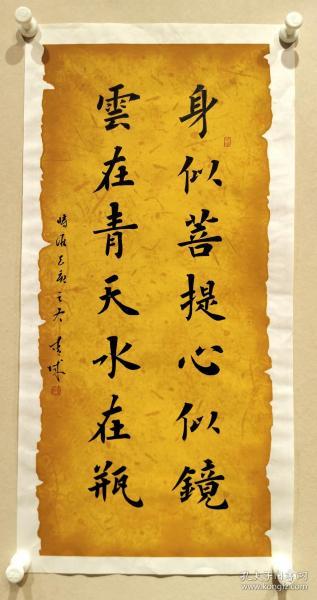 身似菩提心似鏡
雲在青天水在瓶
時酒己亥之冬
孔夫子旧书网
www.kongfz.com